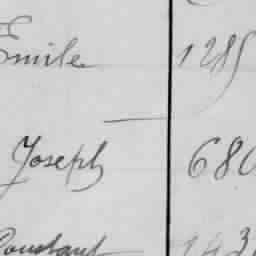 Emile 1285
Joseph 680
Constant 143